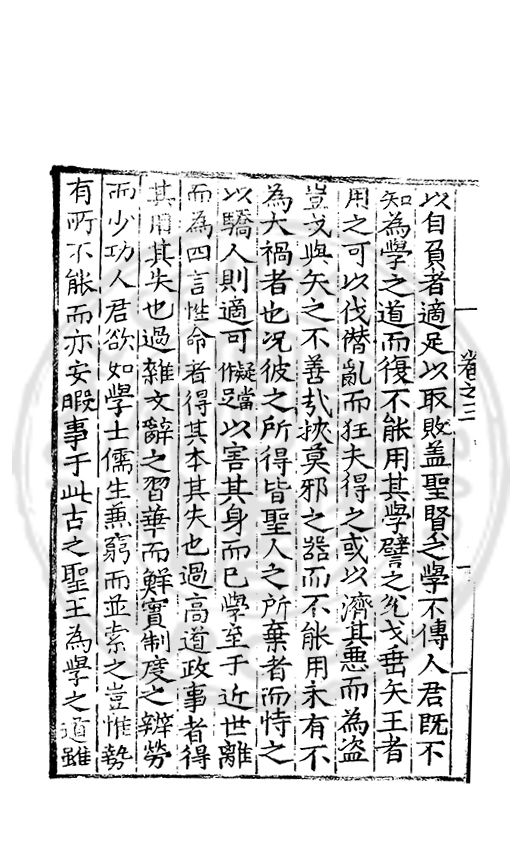 卷之三
以自負者適足以取敗盖聖賢之學不傳人君既不
知為學之道而復不能用其學譬之兊戈垂矢王者
用之可以伐僭亂而狂夫得之或以濟其惡而為盗
豈戈與矢之不善哉挾莫邪之器而不能用未有不
為大禍者也况彼之所得皆聖人之所棄者而恃之
以驕人則適可擬當作足以害其身而已學至于近世離
而為四言性命者得其本其失也過高道政事者得
其用其失也過雜文辭之習華而鮮實制度之辨勞
而少功人君欲如學士儒生兼窮而並索之豈惟勢
有所不能而亦安暇事于此古之聖王為學之道雖